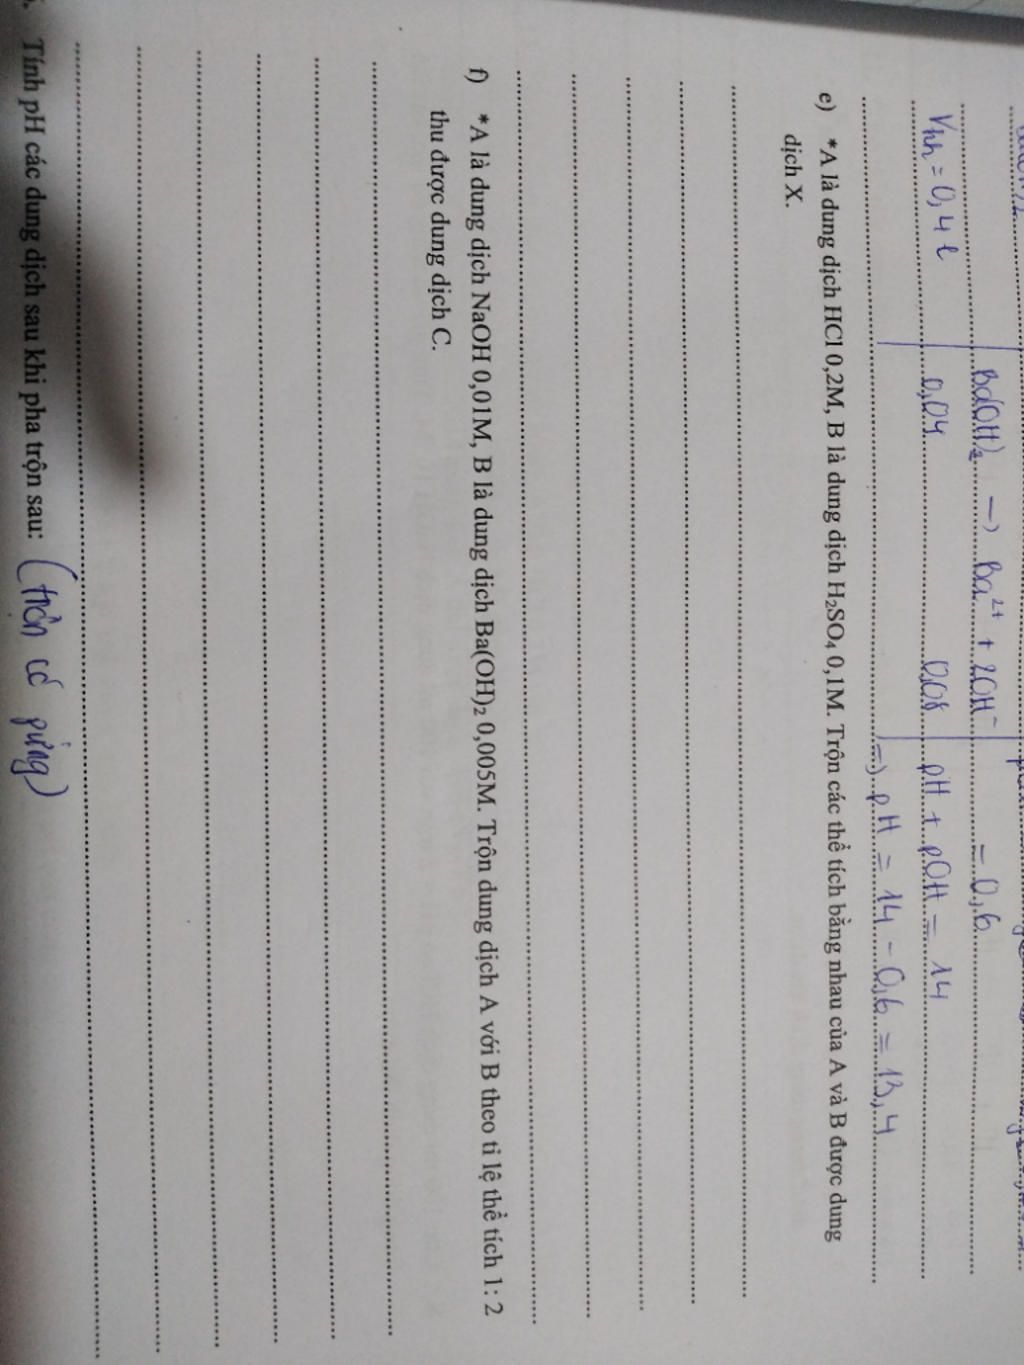 Ba(OH)₂ → Ba²⁺ + 2OH⁻ = 0,6
Vhh = 0,4 l 0,04 0,08 pH + pOH = 14
=> pH = 14 - 0,6 = 13,4
e) *A là dung dịch HCl 0,2M, B là dung dịch H₂SO₄ 0,1M. Trộn các thể tích bằng nhau của A và B được dung
dịch X.
f) *A là dung dịch NaOH 0,01M, B là dung dịch Ba(OH)₂ 0,005M. Trộn dung dịch A với B theo tỉ lệ thể tích 1: 2
thu được dung dịch C.
Tính pH các dung dịch sau khi pha trộn sau: (trộn có pứng)